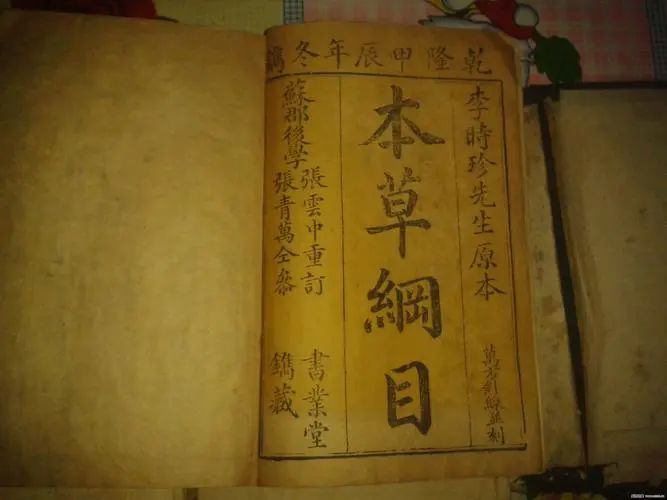 乾隆甲辰年冬鐫
李時珍先生原本
萬方針線並刻
本草綱目
蘇郡後學
張雲中重訂
張青萬仝參
書業堂
鐫藏